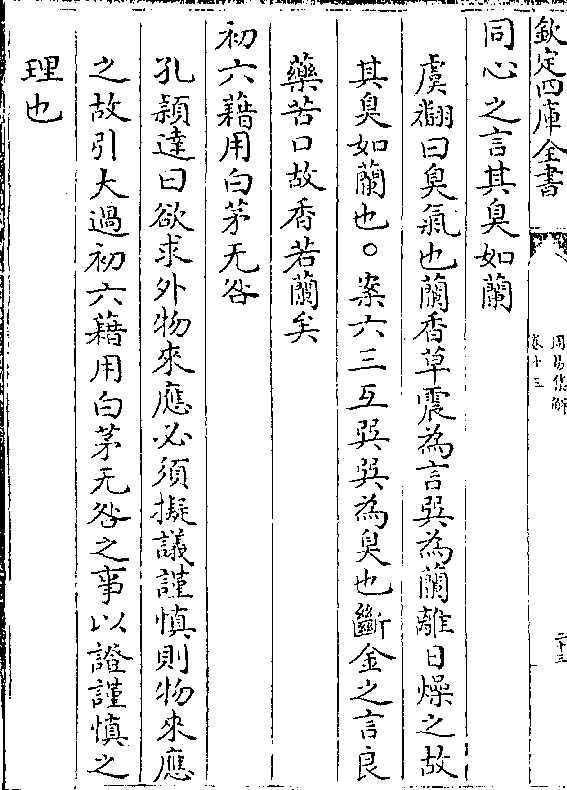 欽定四庫全書
周易集解
卷十三
二十三
同心之言其臭如蘭
虞翻曰臭氣也蘭香草震為言巽為蘭離日燥之故
其臭如蘭也○案六三互巽巽為臭也斷金之言良
藥苦口故香若蘭矣
初六藉用白茅无咎
孔穎達曰欲求外物來應必須擬議謹慎則物來應
之故引大過初六藉用白茅无咎之事以證謹慎之
理也